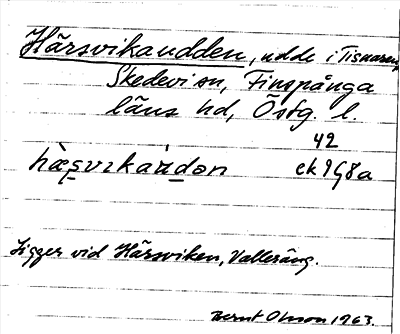 Härsvikaudden, udde i Tisnaren,
Skedevi sn, Finspånga
läns hd, Östg. l.
42
hæ̀ʂvɩkau̇dən ek 9G8a
Ligger vid Härsviken, Valleräng.
Bernt Olsson 1963